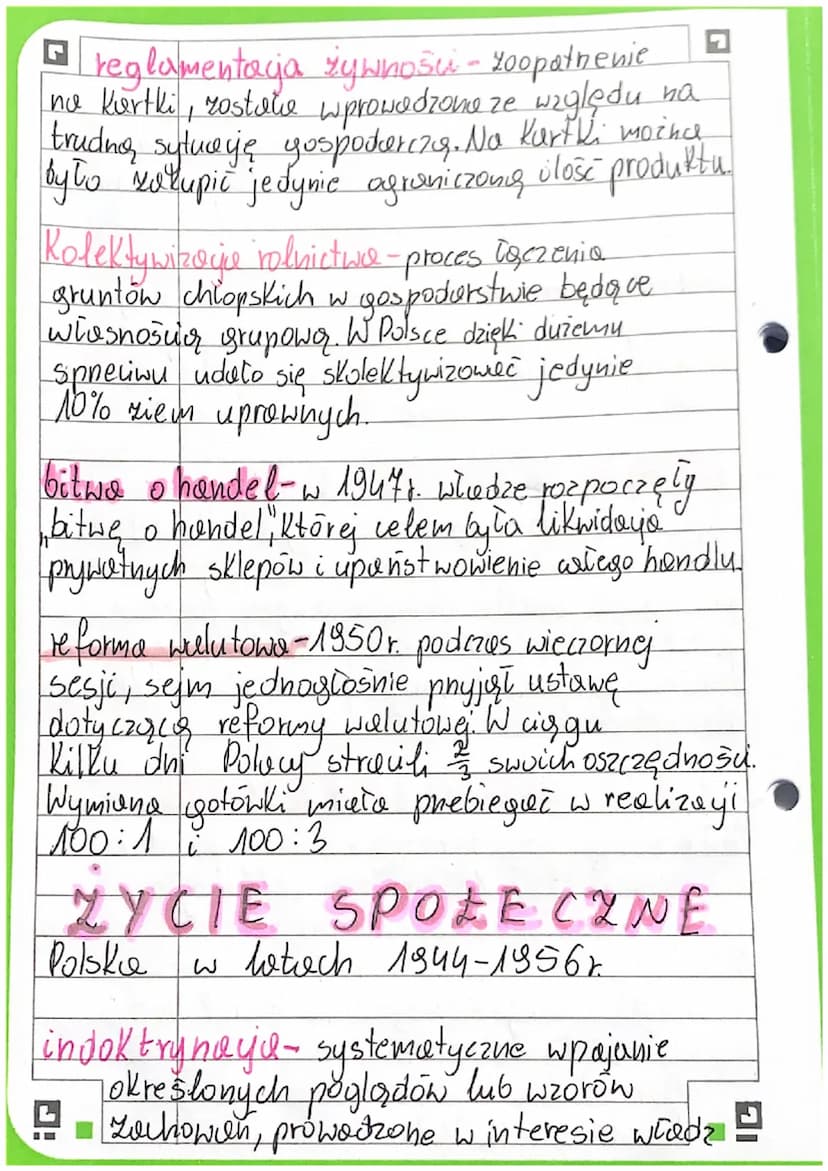 reglamentacja żywności - zaopatrzenie
na kartki, została wprowadzona ze względu na
trudną sytuację gospodarczą. Na kartki można
było zakupić jedynie ograniczoną ilość produktu.
Kolektywizacja rolnictwa - proces łączenia
gruntów chłopskich w gospodarstwie będące
własnością grupową. W Polsce dzięki dużemu
sprzeciwu udało się skolektywizować jedynie
10% ziem uprawnych.
bitwa o handel - w 1947r. władze rozpoczęły
„bitwę o handel", której celem była likwidacja
prywatnych sklepów i upaństwowienie całego handlu.
reforma walutowa - 1950r. podczas wieczornej
sesji, sejm jednogłośnie przyjął ustawę
dotyczącą reformy walutowej. W ciągu
kilku dni Polacy stracili 2/3 swoich oszczędności.
Wymiana gotówki miała przebiegać w realizacji
100:1 i 100:3
ŻYCIE SPOŁECZNE
Polska w latach 1944-1956r.
indoktrynacja - systematyczne wpajanie
określonych poglądów lub wzorów
zachowań, prowadzone w interesie władz